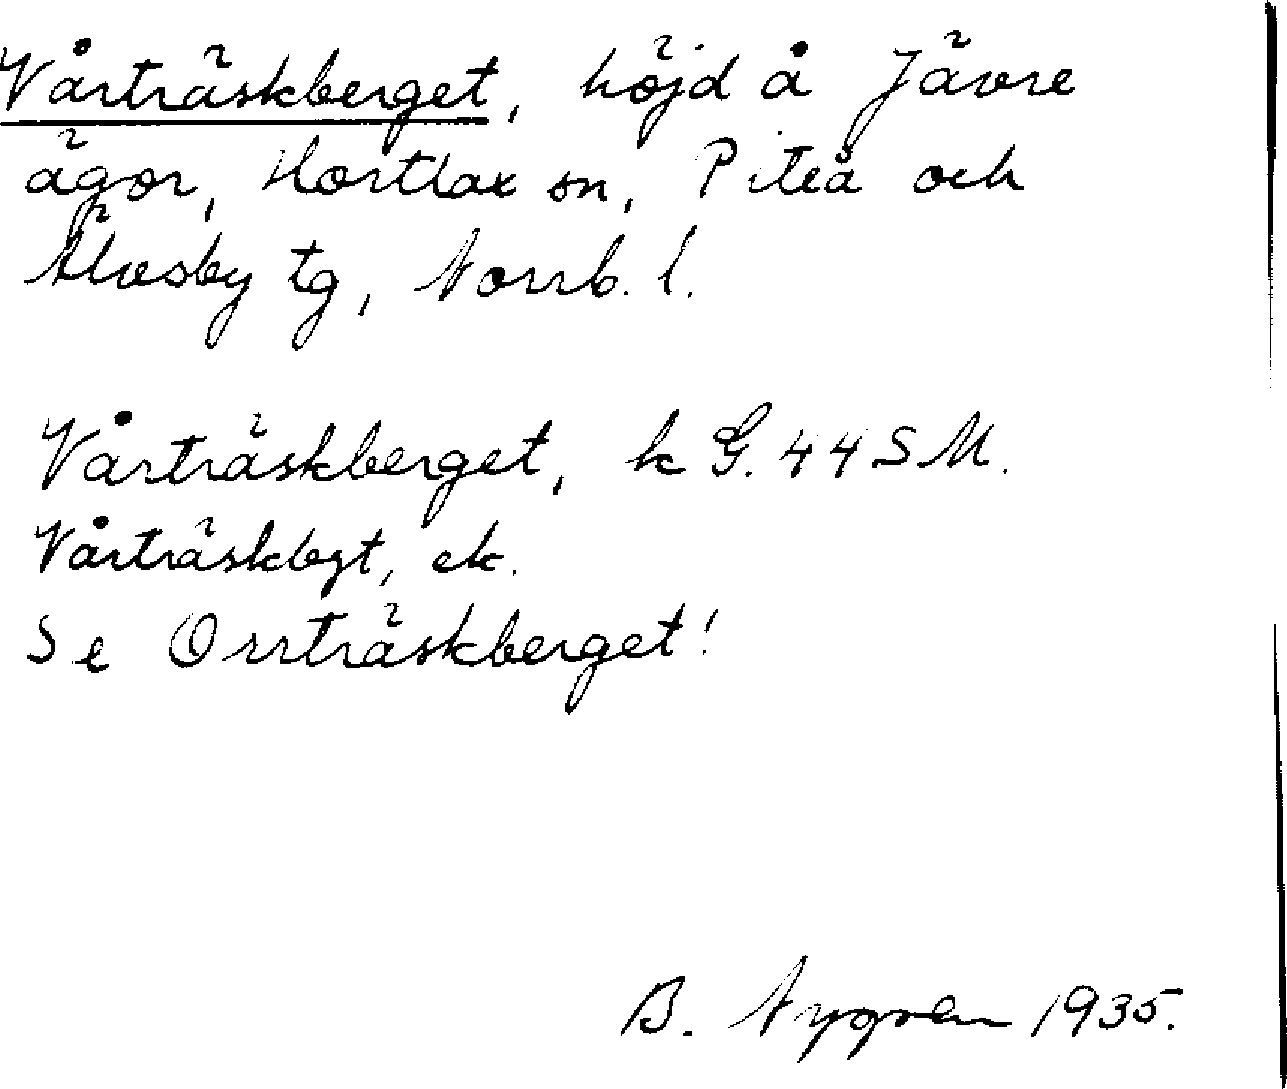 Vårträskberget, höjd å Jävre
ägor, Hortlax sn, Piteå och
Älvsby tg, Norrb. l.
Vårträskberget, k G. 44 S M.
Vårträskbgt, ek.
Se Orrträskberget!
B. Nygren 1935.